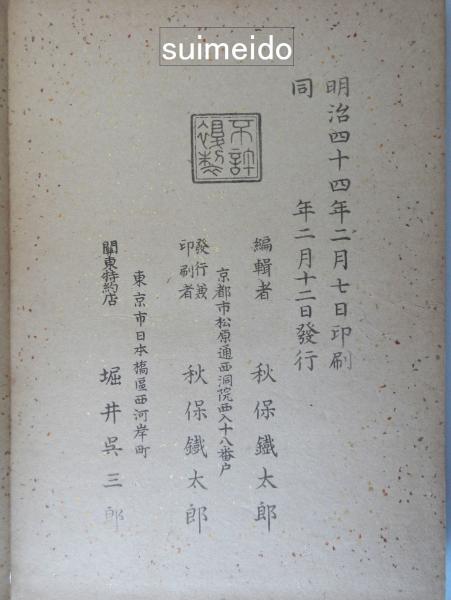 suimeido
明治四十四年二月七日印刷
同　　年二月十二日發行
不許
複製
編輯者　秋保鐵太郎
京都市松原通西洞院西入十八番戸
發行兼
印刷者　秋保鐵太郎
東京市日本橋區西河岸町
關東特約店　堀井呉三郎